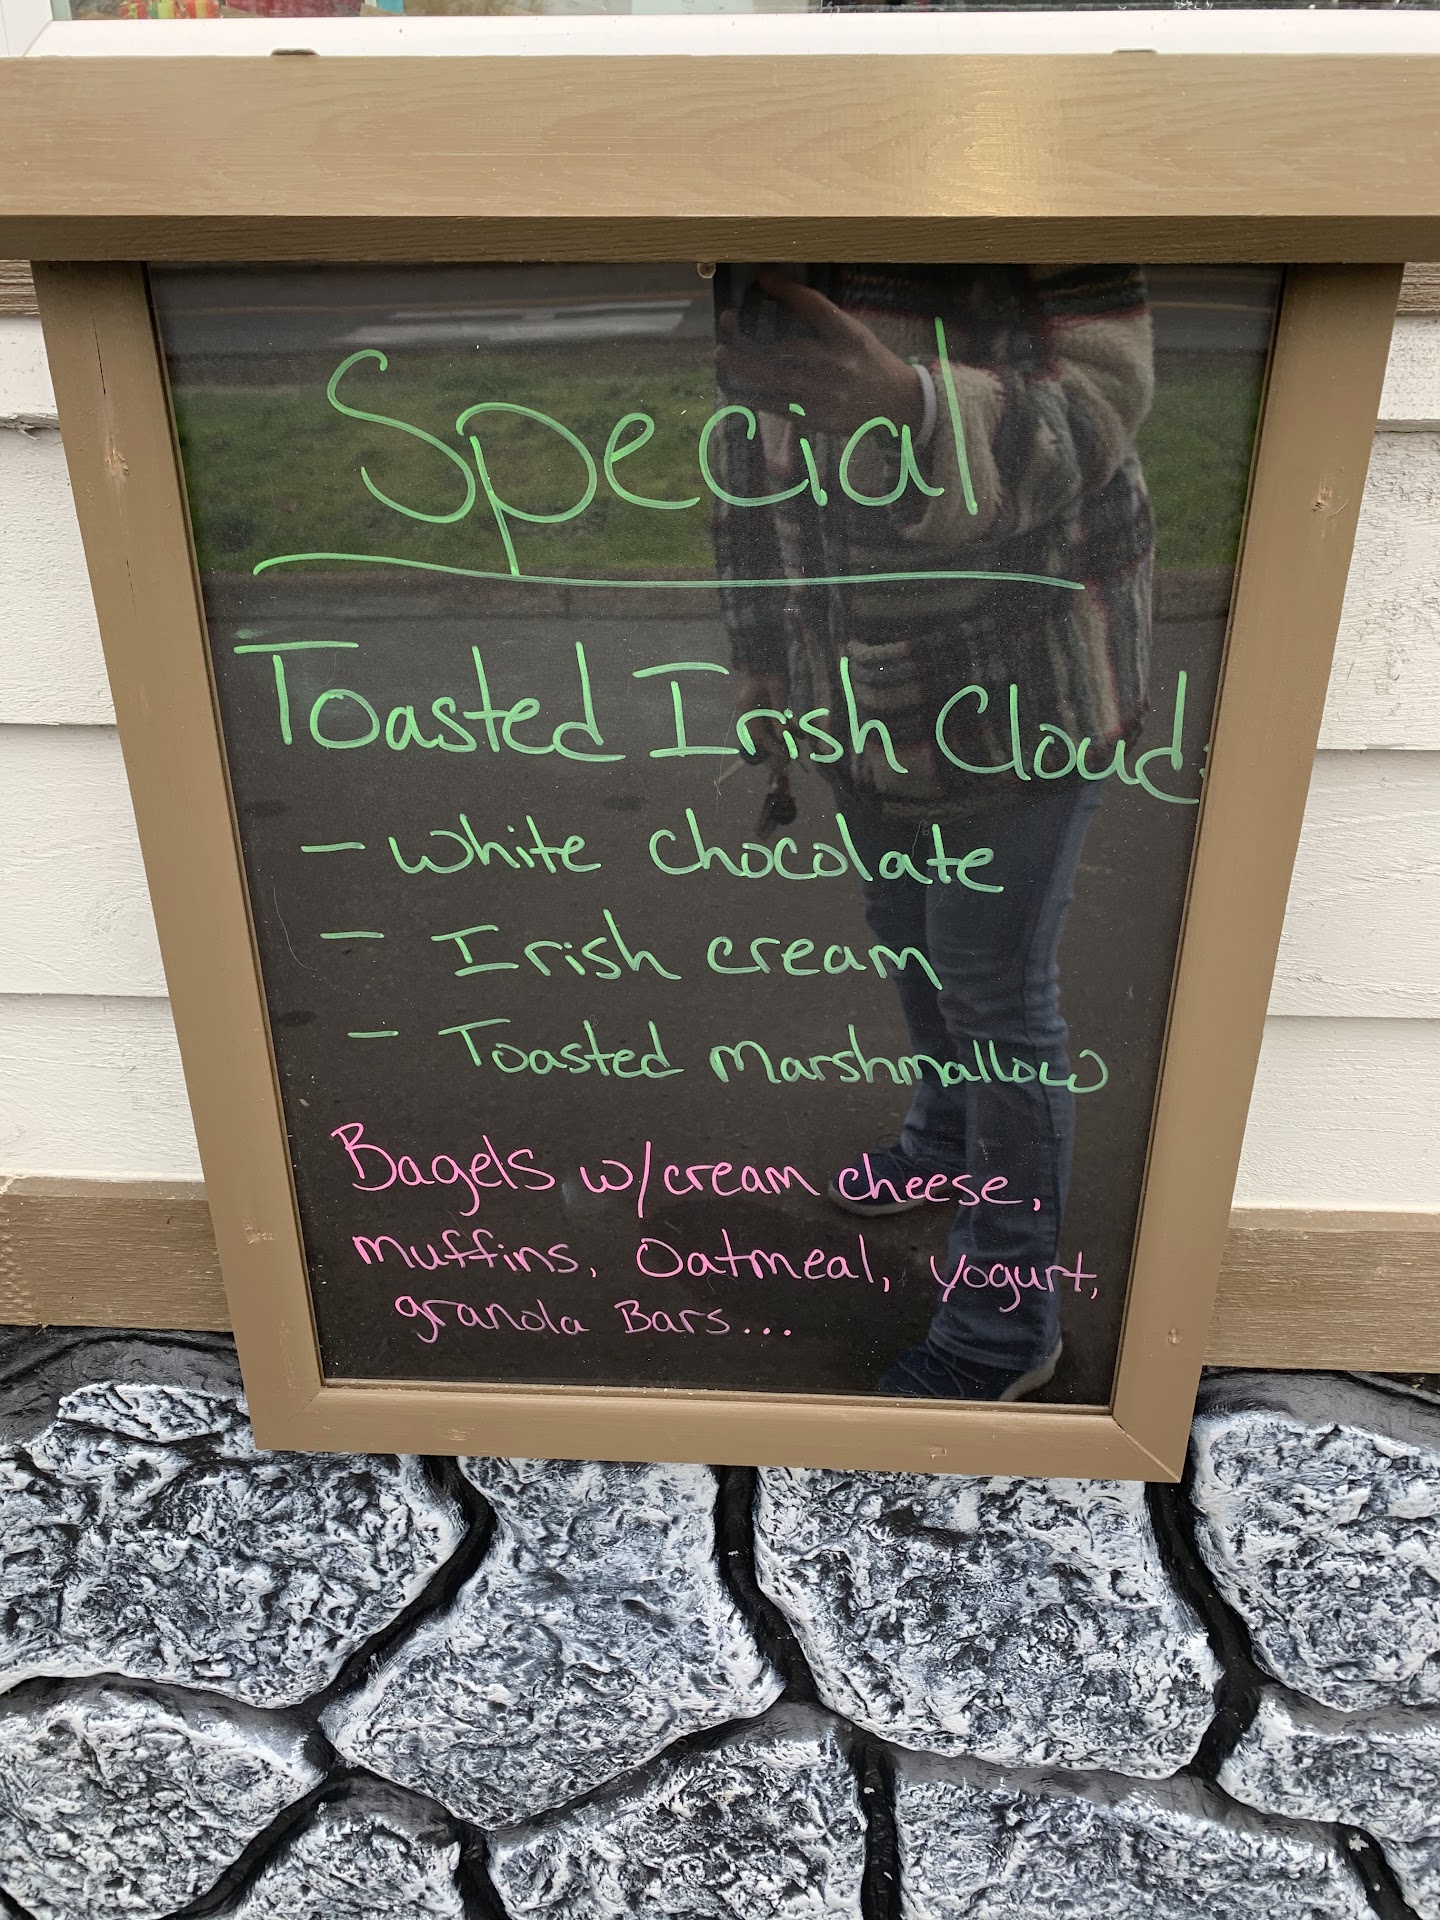 Special
Toasted Irish Cloud:
- white chocolate
- Irish cream
- Toasted marshmallow
Bagels w/cream cheese,
muffins, Oatmeal, yogurt,
granola Bars...